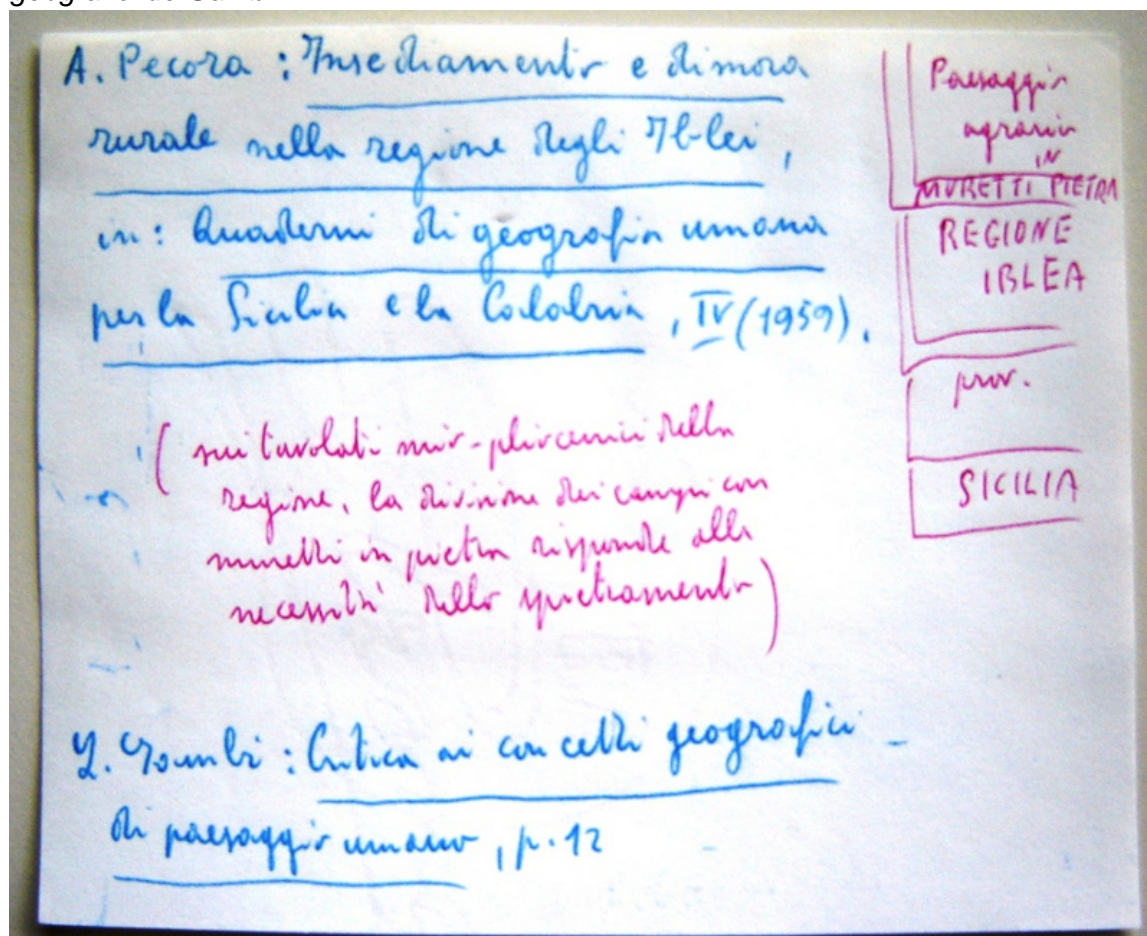 A. Pecora : Insediamento e dimora
rurale nella regione degli Iblei,
in: Quaderni di geografia umana
per la Sicilia e la Calabria, IV (1959).
(sui tavolati mio-pliocenici della
regione, la divisione dei campi con
muretti in pietra risponde alla
necessità dello spietramento)
L. Gambi : Critica ai concetti geografici
di paesaggio umano, p. 12
Paesaggio
agrario
IN
MURETTI PIETRA
REGIONE
IBLEA
prov.
SICILIA